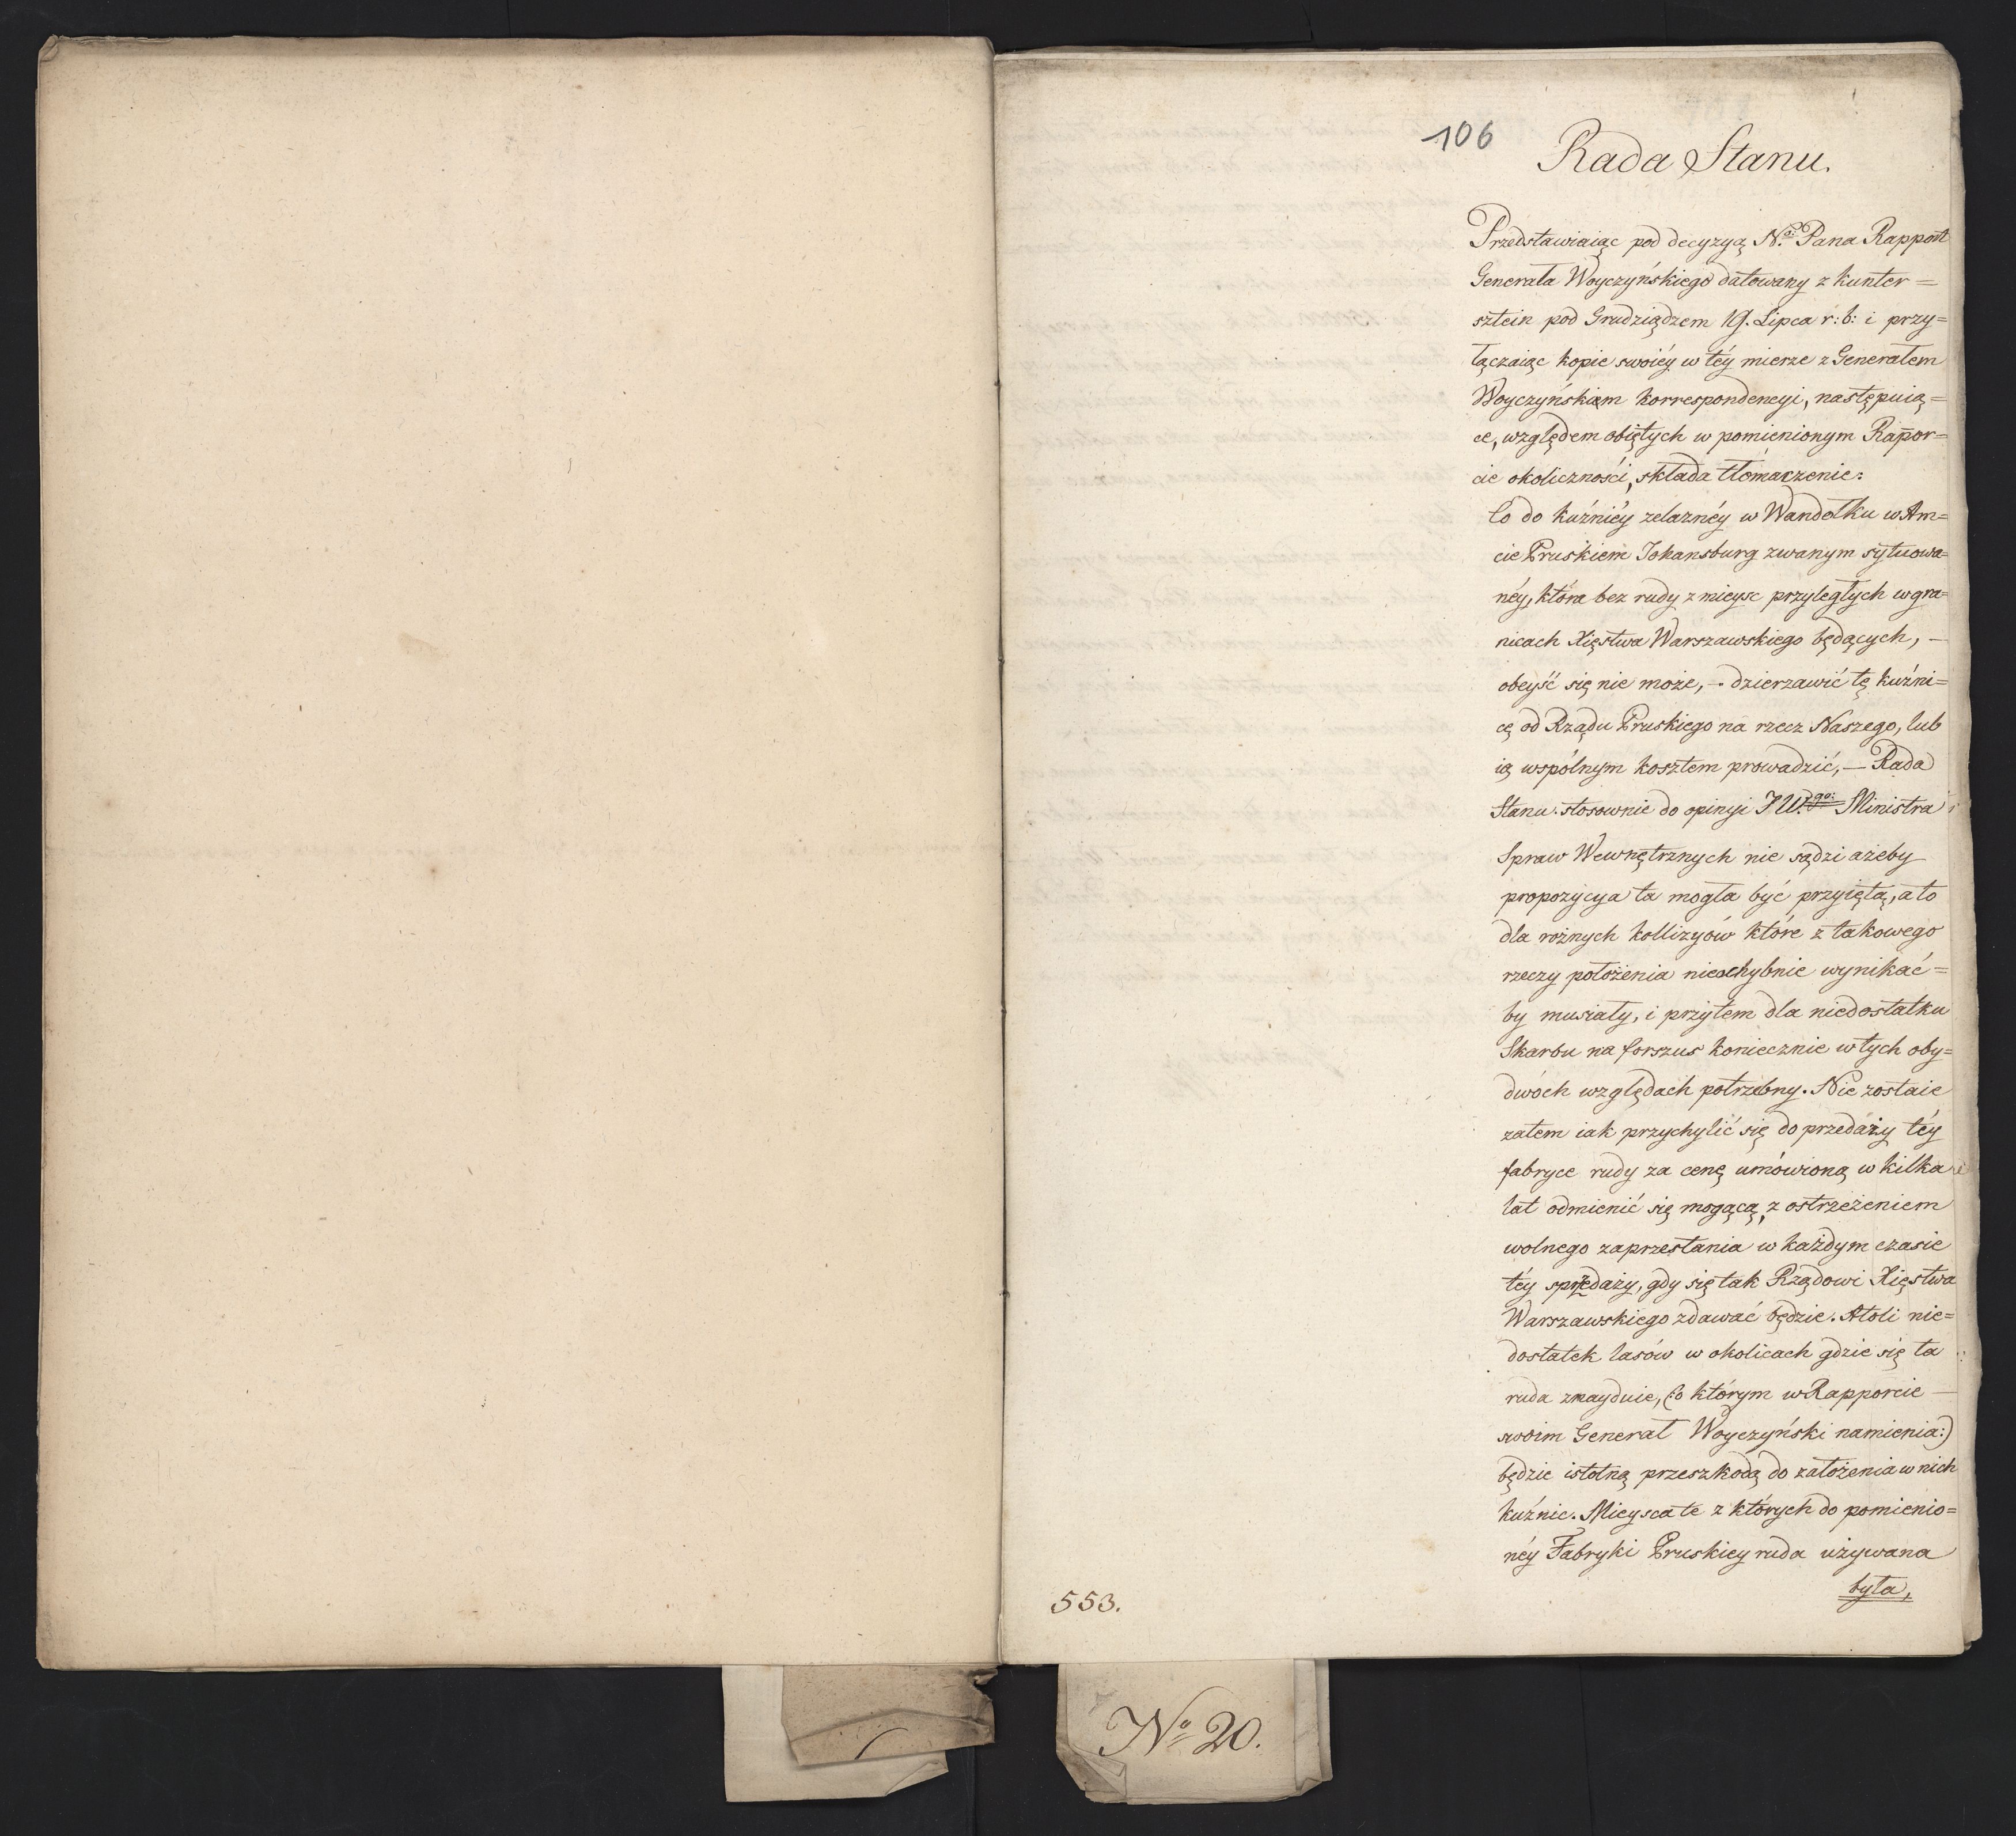 106
Rada Stanu.
Przedstawiaiąc pod decyzyą N.º Pana Rapport
Generała Woyczyńskiego datowany z Kunter=
sztein pod Grudziądzem 19. Lipca r: b: i przy=
łączaiąc kopie swoiéy w téy mierze z Generałem
Woyczyńskiem korrespondencyi, następuią=
ce, względem obiętych w pomienionym Rappor=
cie okoliczności, składa tłomaczenie:
Co do kuźnicy zelaznéy w Wandołku w Am=
cie Pruskiem Johansburg zwanym sytuowa=
néy, która bez rudy z mieysc przyległych w gra=
nicach Xięstwa Warszawskiego będących, —
obeyść się nie może, — dzierzawić tę kuźni=
cę od Rządu Pruskiego na rzecz Naszego, lub
ią wspólnym kosztem prowadzić, — Rada
Stanu stosownie do opinyi JW.go: Ministra
Spraw Wewnętrznych nie sądzi ażeby
propozycya ta mogła być przyiętą, a to
dla rożnych kollizyów które z takowego
rzeczy położenia niechybnie wynikać=
by musiały, i przytem dla niedostatku
Skarbu na forszus koniecznie w tych oby=
dwóch względach potrzebny. Nie zostaie
zatem iak przychylić się do przedaży téy
fabryce rudy za cenę umówioną w kilka
lat odmienić się mogącą, z ostrzeżeniem
wolnego zaprzestania w każdym czasie
téy sprzedaży, gdy się tak Rządowi Xięstwa
Warszawskiego zdawać będzie. Atoli nie=
dostatek lasów w okolicach gdzie się ta
ruda znayduie, (:o którym w Rapporcie —
swoim Generał Woyczyński namienia:)
będzie istotną przeszkodą do założenia w nich
kuźnic. Mieysca te z których do pomienio=
néy Fabryki Pruskiey ruda używana
była,
553.
Nº 20.